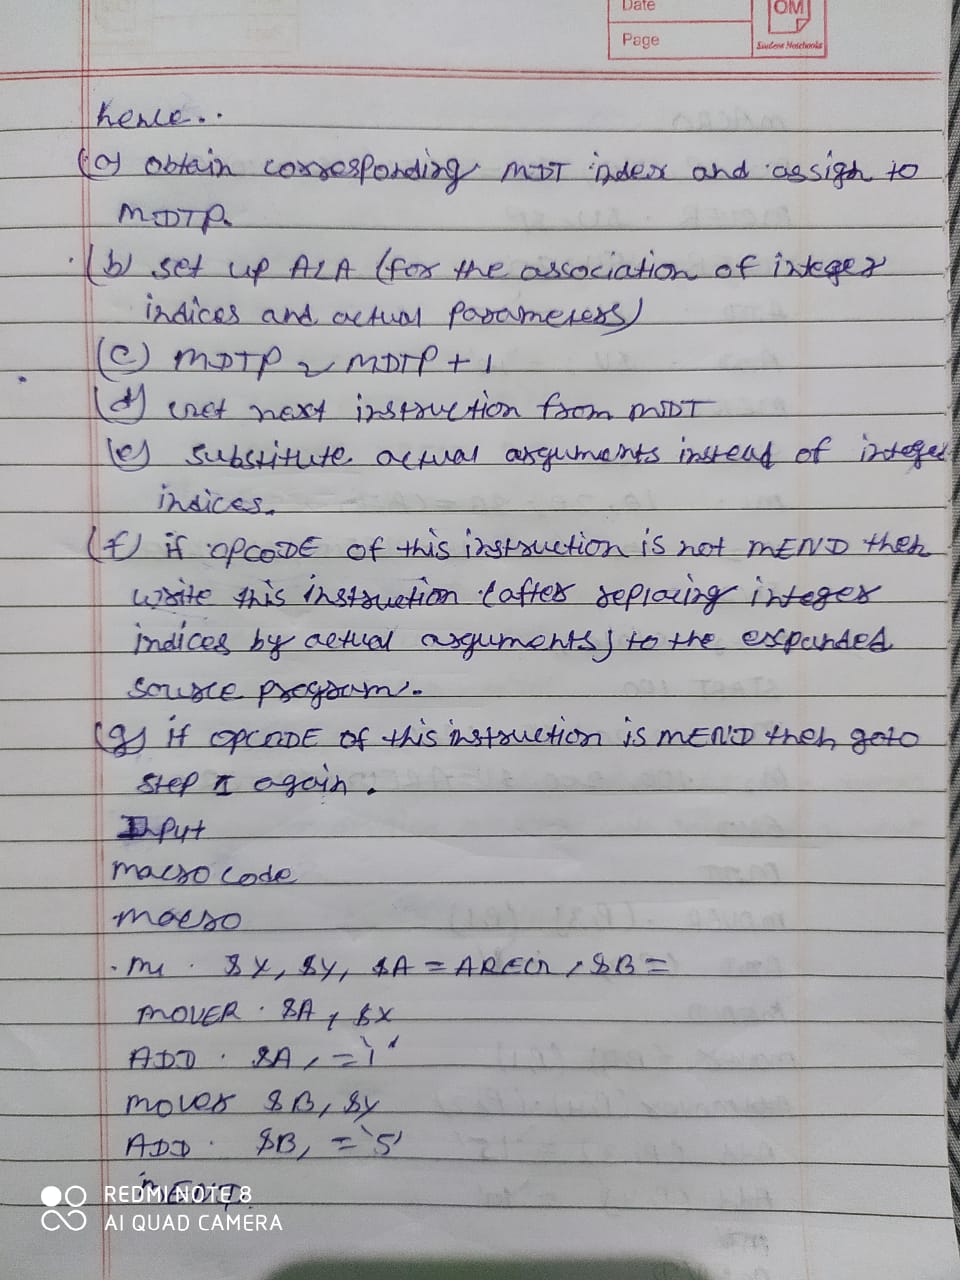 Date
Page
OM
Student Notebooks
hence..
(a) obtain corresponding MDT index and assign to
MDTP.
(b) set up ALA (for the association of integer
indices and actual parameters)
(c) MDTP = MDTP + 1
(d) Get next instruction from MDT
(e) substitute actual arguments instead of integer
indices.
(f) if OPCODE of this instruction is not MEND then
write this instruction (after replacing integer
indices by actual arguments) to the expanded
source program.
(g) if OPCODE of this instruction is MEND then goto
step 1 again.
Input
macro code
macro
M1 &X, &Y, &A = AREG, &B =
MOVER &A, &X
ADD &A, ='1'
MOVER &B, &Y
ADD &B, ='5'
MEND
REDMI NOTE 8
AI QUAD CAMERA